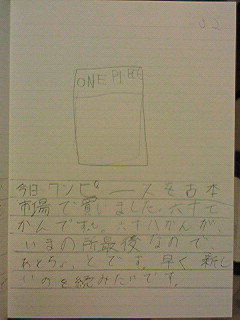 ONE PIECE
今日ワンピースを古本
市場で買いました。六十七
かんです。六十八かんが、
いまの所最後なので、
あとちょっとです。早く新し
いのを読みたいです。